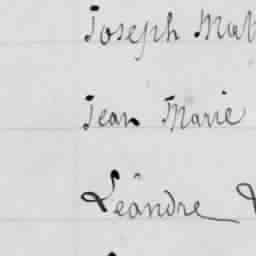 Joseph
Jean Marie
Léandre